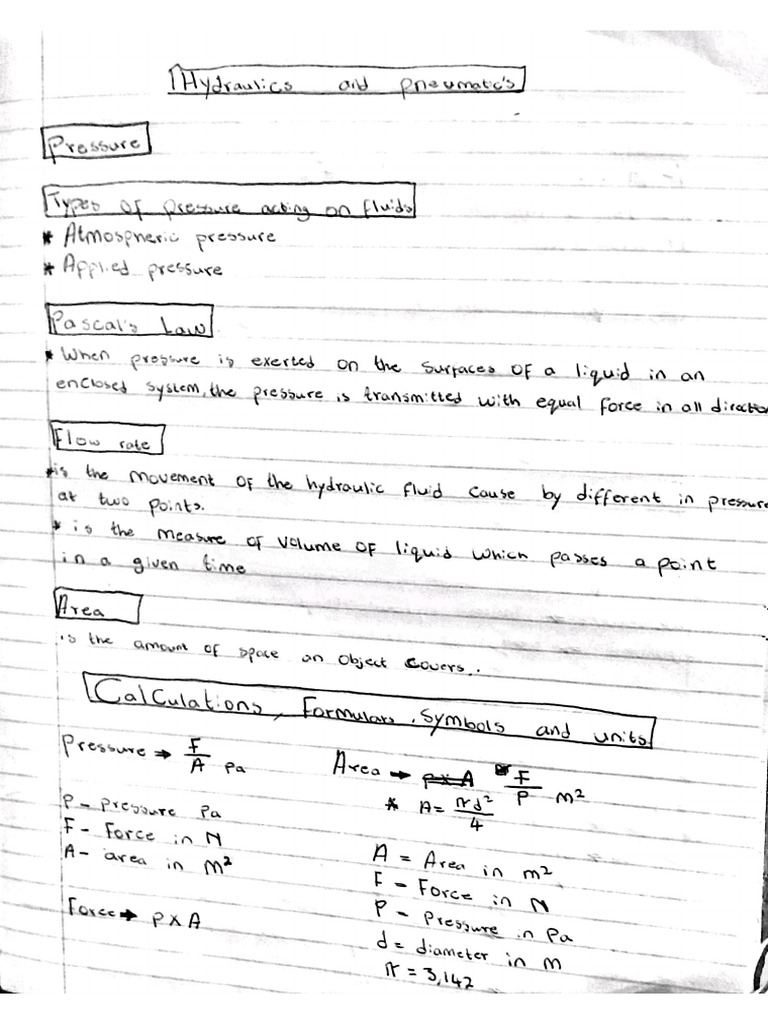 Hydraulics and pneumatic's
Pressure
Types of pressure acting on fluids
* Atmospheric pressure
* Applied pressure
Pascal's Law
* When pressure is exerted on the surfaces of a liquid in an
enclosed system, the pressure is transmitted with equal force in all direction
Flow rate
* is the movement of the hydraulic fluid cause by different in pressure
at two points.
* is the measure of volume of liquid which passes a point
in a given time
Area
is the amount of space an object covers.
Calculations, Formulars, Symbols and units
Pressure → F/A Pa
Area → P×A F/P m²
* A = πd²/4
P - pressure Pa
F - Force in N
A - area in m²
Force → P×A
A = Area in m²
F - Force in N
P - Pressure in Pa
d = diameter in m
π = 3,142